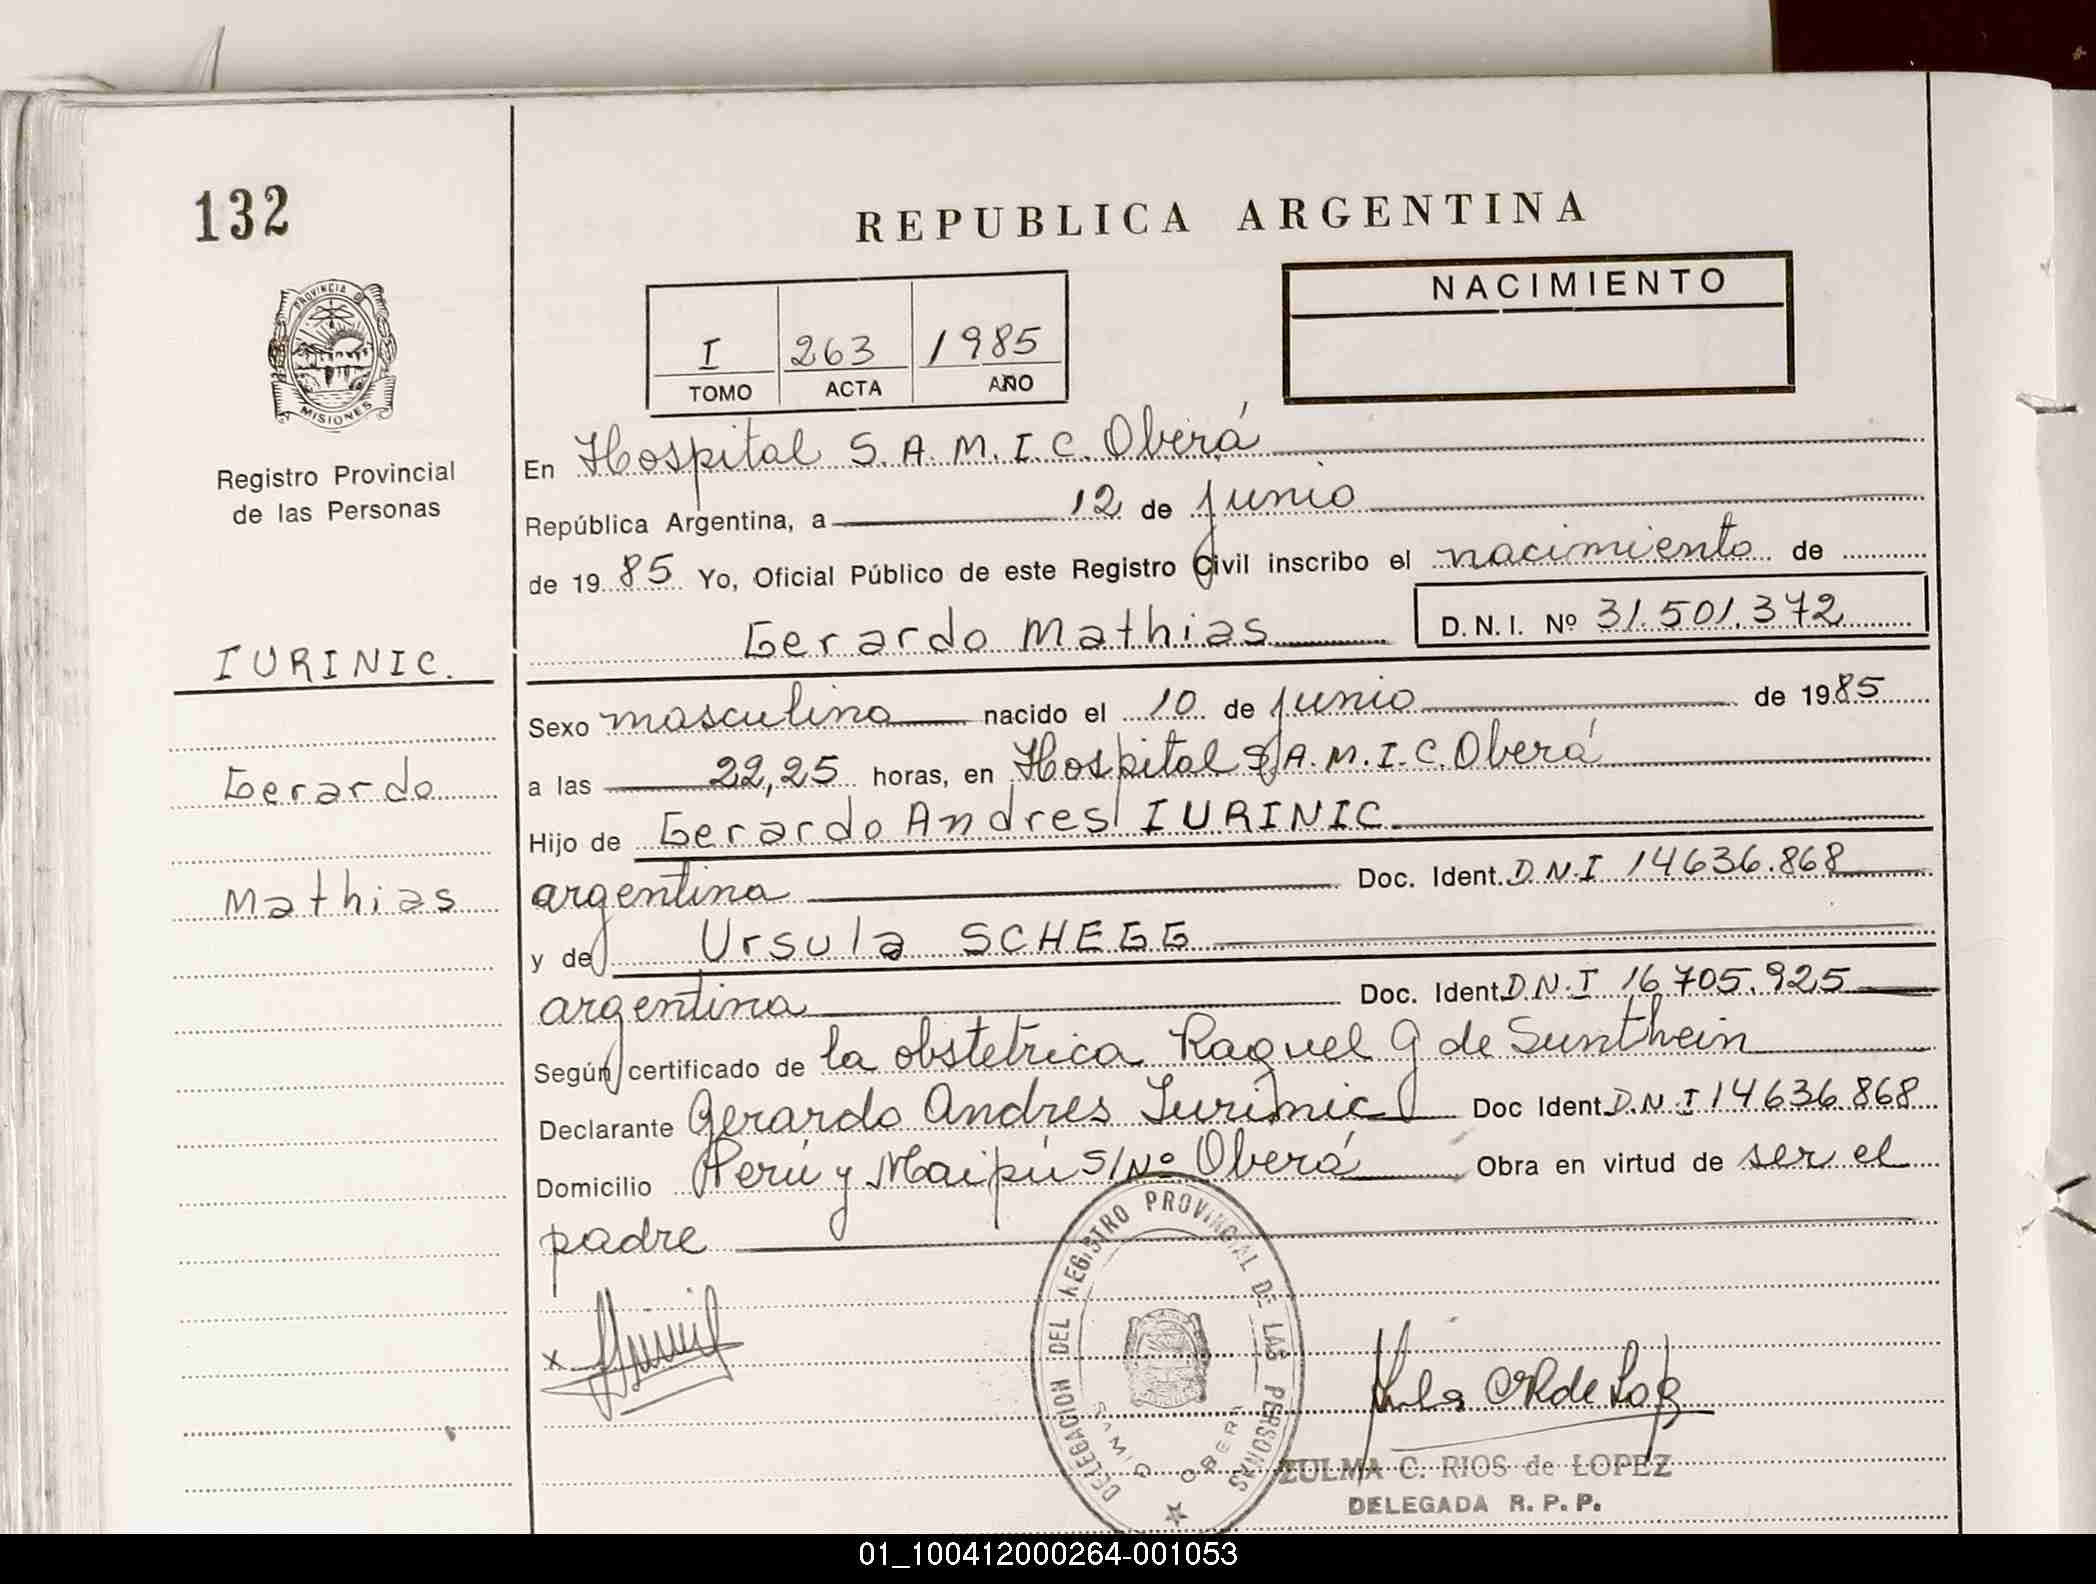 132
REPUBLICA ARGENTINA
PROVINCIA DE
MISIONES
Registro Provincial
de las Personas
I 263 1985
TOMO ACTA AÑO
NACIMIENTO
En Hospital S.A.M.I.C. Oberá
República Argentina, a 12 de junio
de 1985 Yo, Oficial Público de este Registro Civil inscribo el nacimiento de
Gerardo Mathias D.N.I. Nº 31.501.372
IURINIC.
Gerardo
Mathias
Sexo masculino nacido el 10 de junio de 1985
a las 22,25 horas, en Hospital S.A.M.I.C. Oberá
Hijo de Gerardo Andres IURINIC
argentina Doc. Ident. D.N.I 14636.868
y de Ursula SCHEGG
argentina Doc. Ident. D.N.I 16705.925
Según certificado de la obstetrica Raquel G de Sunthein
Declarante Gerardo Andres Iurinic Doc Ident. D.N.I 14636.868
Domicilio Perú y Maipú S/Nº Oberá Obra en virtud de ser el
padre
x
DELEGACION DEL REGISTRO PROVINCIAL DE LAS PERSONAS
SAMIC OBERA
ZULMA C. RIOS de LOPEZ
DELEGADA R. P. P.
01_100412000264-001053